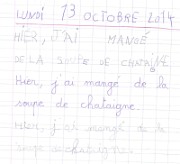 LUNDI 13 OCTOBRE 2014
HIER, J'AI MANGÉ
DE LA SOUPE DE CHATAIGNE
Hier, j'ai mangé de la
soupe de chataigne.
Hier, j'ai mangé de la
soupe de chataigne.